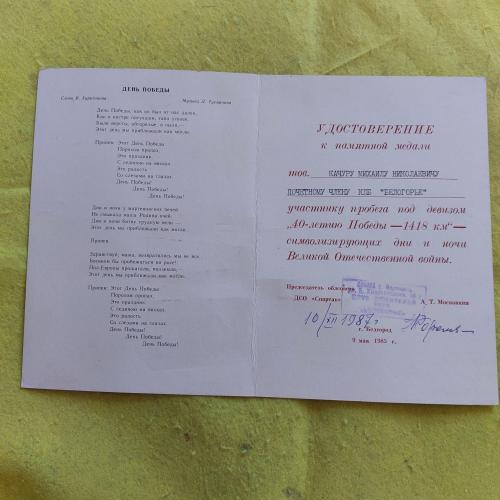 ДЕНЬ ПОБЕДЫ
Слова В. Харитонова Музыка Д. Тухманова
День Победы, как он был от нас далек,
Как в костре потухшем, таял уголек.
Были версты, обгорелые, в пыли,—
Этот день мы приближали как могли.
Припев: Этот День Победы
Порохом пропах,
Это праздник
С сединою на висках.
Это радость
Со слезами на глазах.
День Победы!
День Победы!
День Победы!
Дни и ночи у мартеновских печей
Не смыкала наша Родина очей.
Дни и ночи битву трудную вели —
Этот день мы приближали как могли.
Припев.
Здравствуй, мама, возвратились мы не все.
Босиком бы пробежаться по росе!
Пол-Европы прошагали, полземли,—
Этот день мы приближали как могли.
Припев: Этот День Победы
Порохом пропах,
Это праздник
С сединою на висках.
Это радость
Со слезами на глазах.
День Победы!
День Победы!
День Победы!
УДОСТОВЕРЕНИЕ
к памятной медали
тов. КАЧУРУ МИХАИЛУ НИКОЛАЕВИЧУ
ПОЧЕТНОМУ ЧЛЕНУ КЛБ "БЕЛОГОРЬЕ"
участнику пробега под девизом
„40-летию Победы —1418 км“—
символизирующих дни и ночи
Великой Отечественной войны.
Председатель облсовета
ДСО «Спартак» А. Т. Московкин
10/XII 1987г.
г. Белгород
9 мая 1985 г.